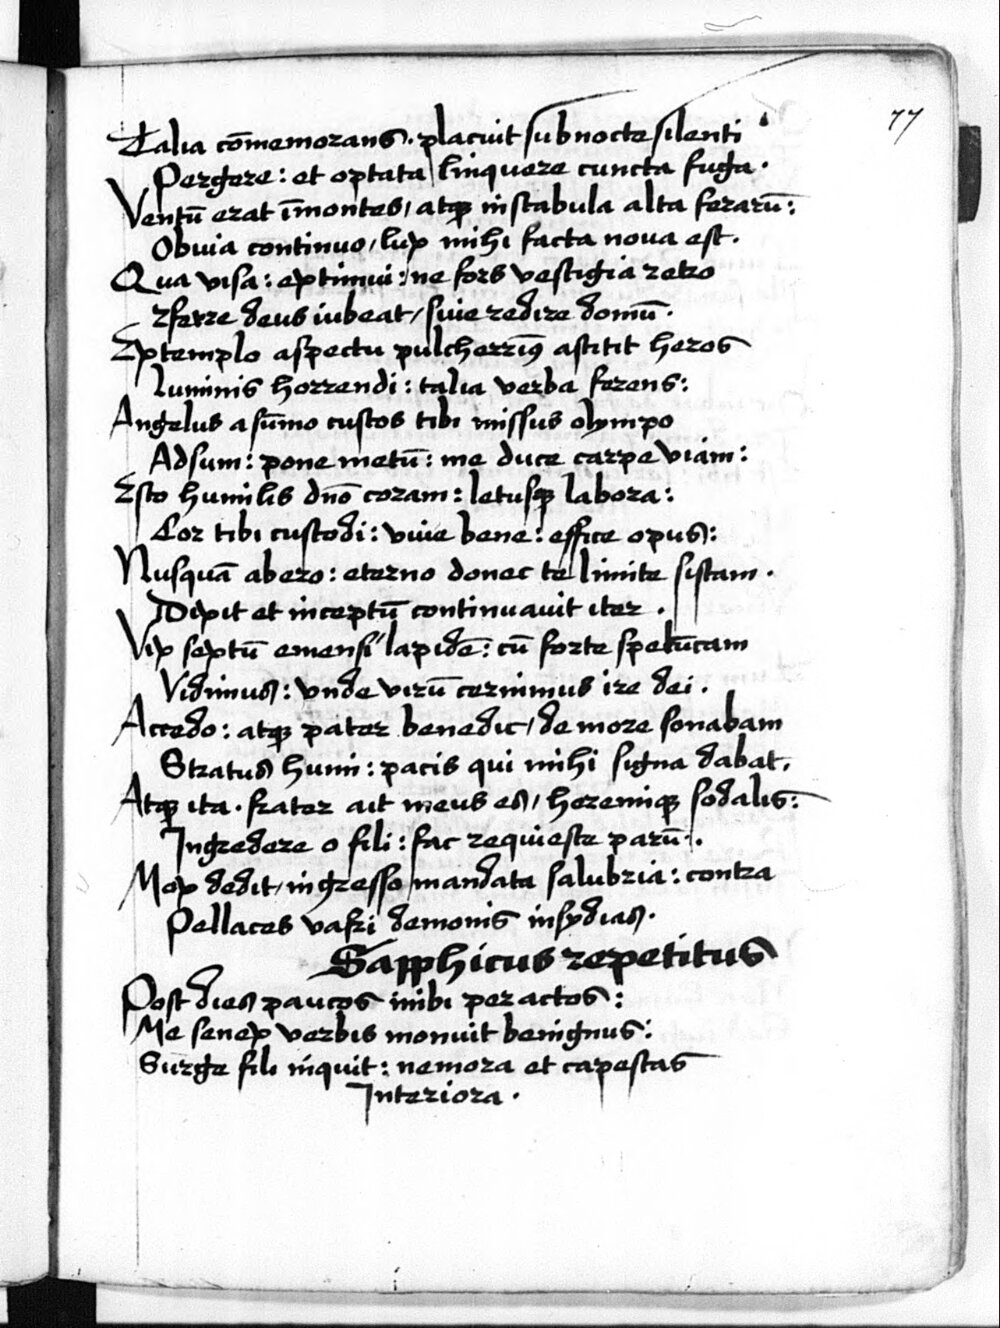 77
Talia cōmemorans. placuit sub nocte silenti
Pergere: et optata linquere cuncta fuga.
Ventū erat ī montes, atqȝ in stabula alta ferarū:
Obuia continuo, lux mihi facta noua est.
Qua visa: extimui: ne fors vestigia retro
Rferre deus iubeat, siue redire domū.
Extemplo aspectu pulcherrimꝰ astitit heros
Luminis horrendi: talia verba ferens:
Angelus a sūmo custos tibi missus olympo
Adsum: pone metū: me duce carpe viam:
Esto humilis dno coram: letusqȝ labora:
Cor tibi custodi: viue bene: effice opus:
Nusquā abero: eterno donec te limite sistam.
Dixit et inceptū continuauit iter.
Vix septū emensi lapidē: cū forte spelūcam
Vidimus: vnde virū cernimus ire dei.
Accedo: atqȝ pater benedic, de more sonabam
Stratus humi: pacis qui mihi signa dabat.
Atqȝ ita. frater ait meus es, heremiqȝ sodalis:
Ingredere o fili: fac requiesce parū.
Mox dedit, ingresso mandata salubria: contra
Pellaces vafri demonis insydias.
Sapphicus repetitus
Post dies paucos inibi peractos:
Me senex verbis monuit benignus:
Surge fili inquit: nemora et capescas
Interiora.